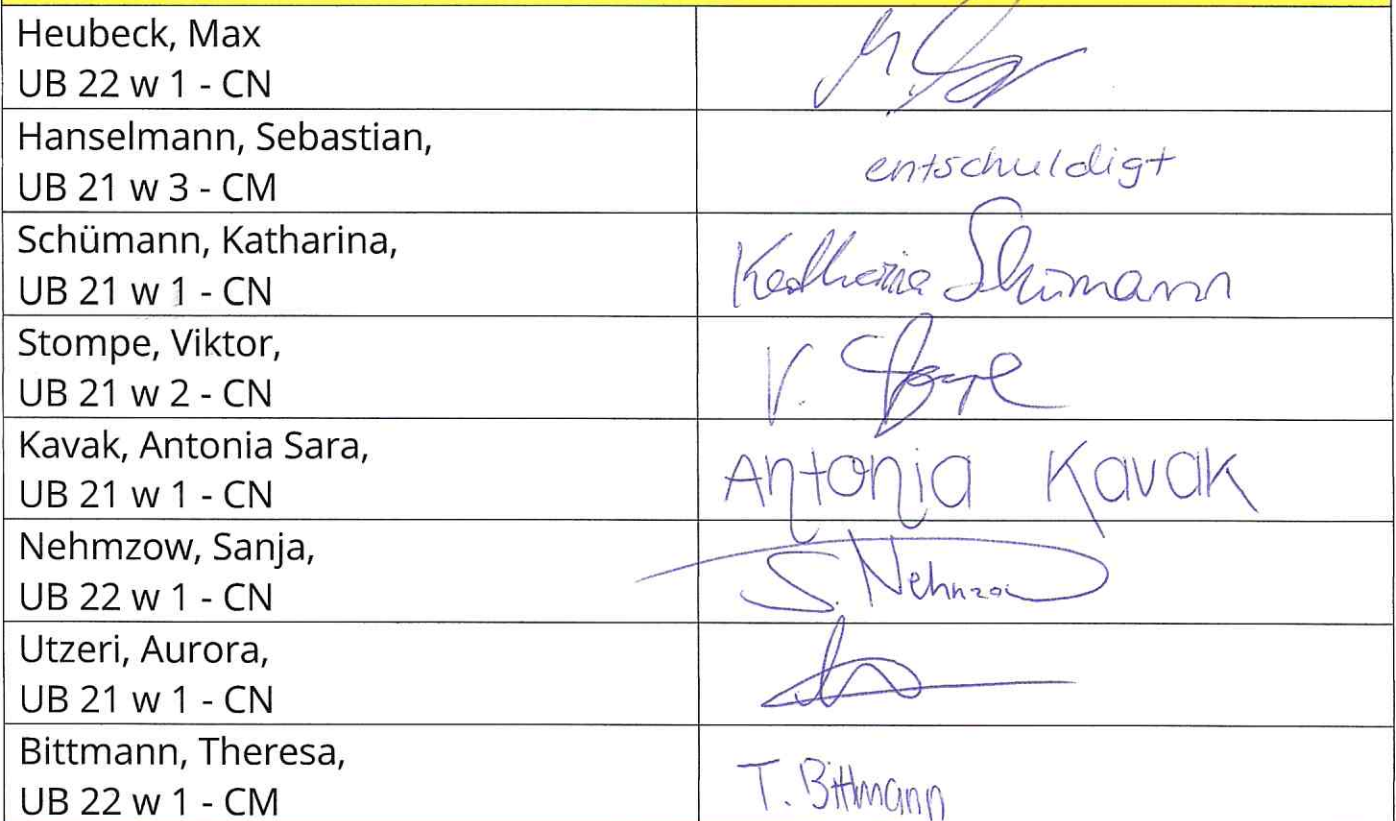 Heubeck, Max
UB 22 w 1 - CN
Hanselmann, Sebastian,
UB 21 w 3 - CM
entschuldigt
Schümann, Katharina,
UB 21 w 1 - CN
Katharina Schümann
Stompe, Viktor,
UB 21 w 2 - CN
V.
Kavak, Antonia Sara,
UB 21 w 1 - CN
Antonia Kavak
Nehmzow, Sanja,
UB 22 w 1 - CN
S. Nehmzow
Utzeri, Aurora,
UB 21 w 1 - CN
Bittmann, Theresa,
UB 22 w 1 - CM
T. Bittmann